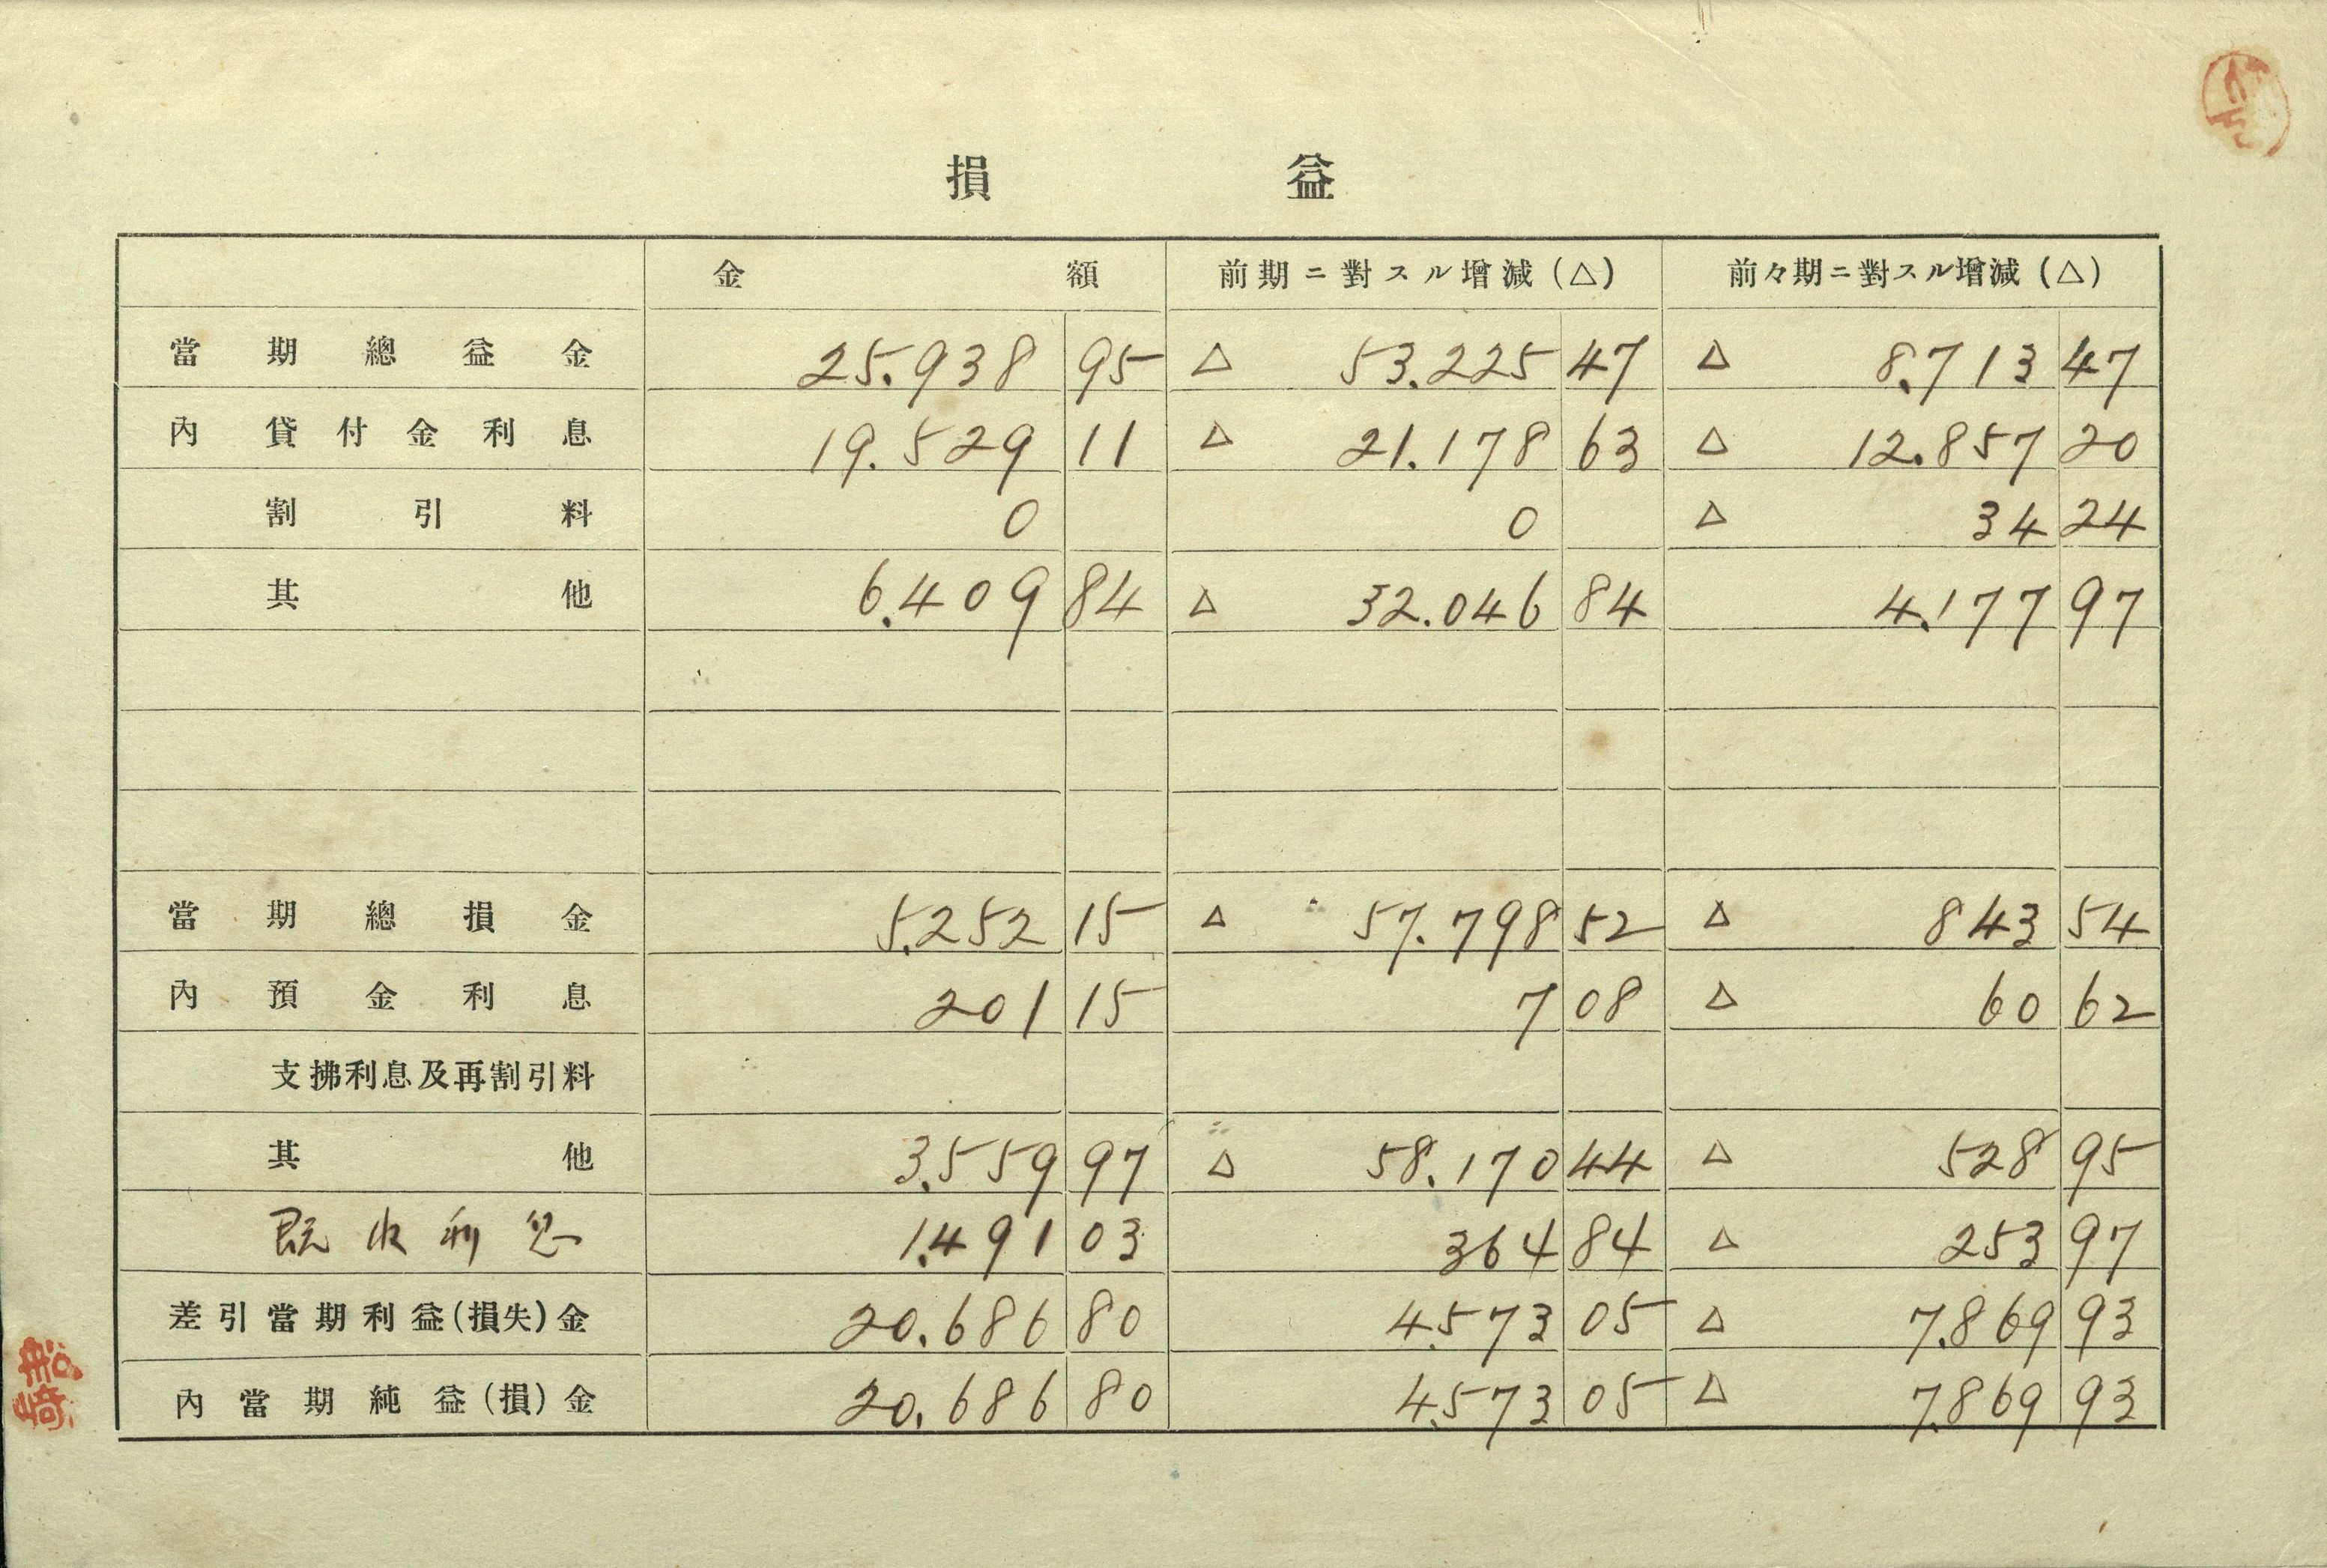 損益
金額 前期ニ對スル增減(△) 前々期ニ對スル增減(△)
當期總益金 25.938 95 △ 53.225 47 △ 8.713 47
內 貸付金利息 19.529 11 △ 21.178 63 △ 12.857 20
割引料 0 0 △ 34 24
其他 6.409 84 △ 32.046 84 4.177 97
當期總損金 5.252 15 △ 57.798 52 △ 843 54
內 預金利息 201 15 7 08 △ 60 62
支拂利息及再割引料
其他 3.559 97 △ 58.170 44 △ 528 95
既收利息 1.491 03 364 84 △ 253 97
差引當期利益(損失)金 20.686 80 4.573 05 △ 7.869 93
內當期純益(損)金 20.686 80 4.573 05 △ 7.869 93
船崎